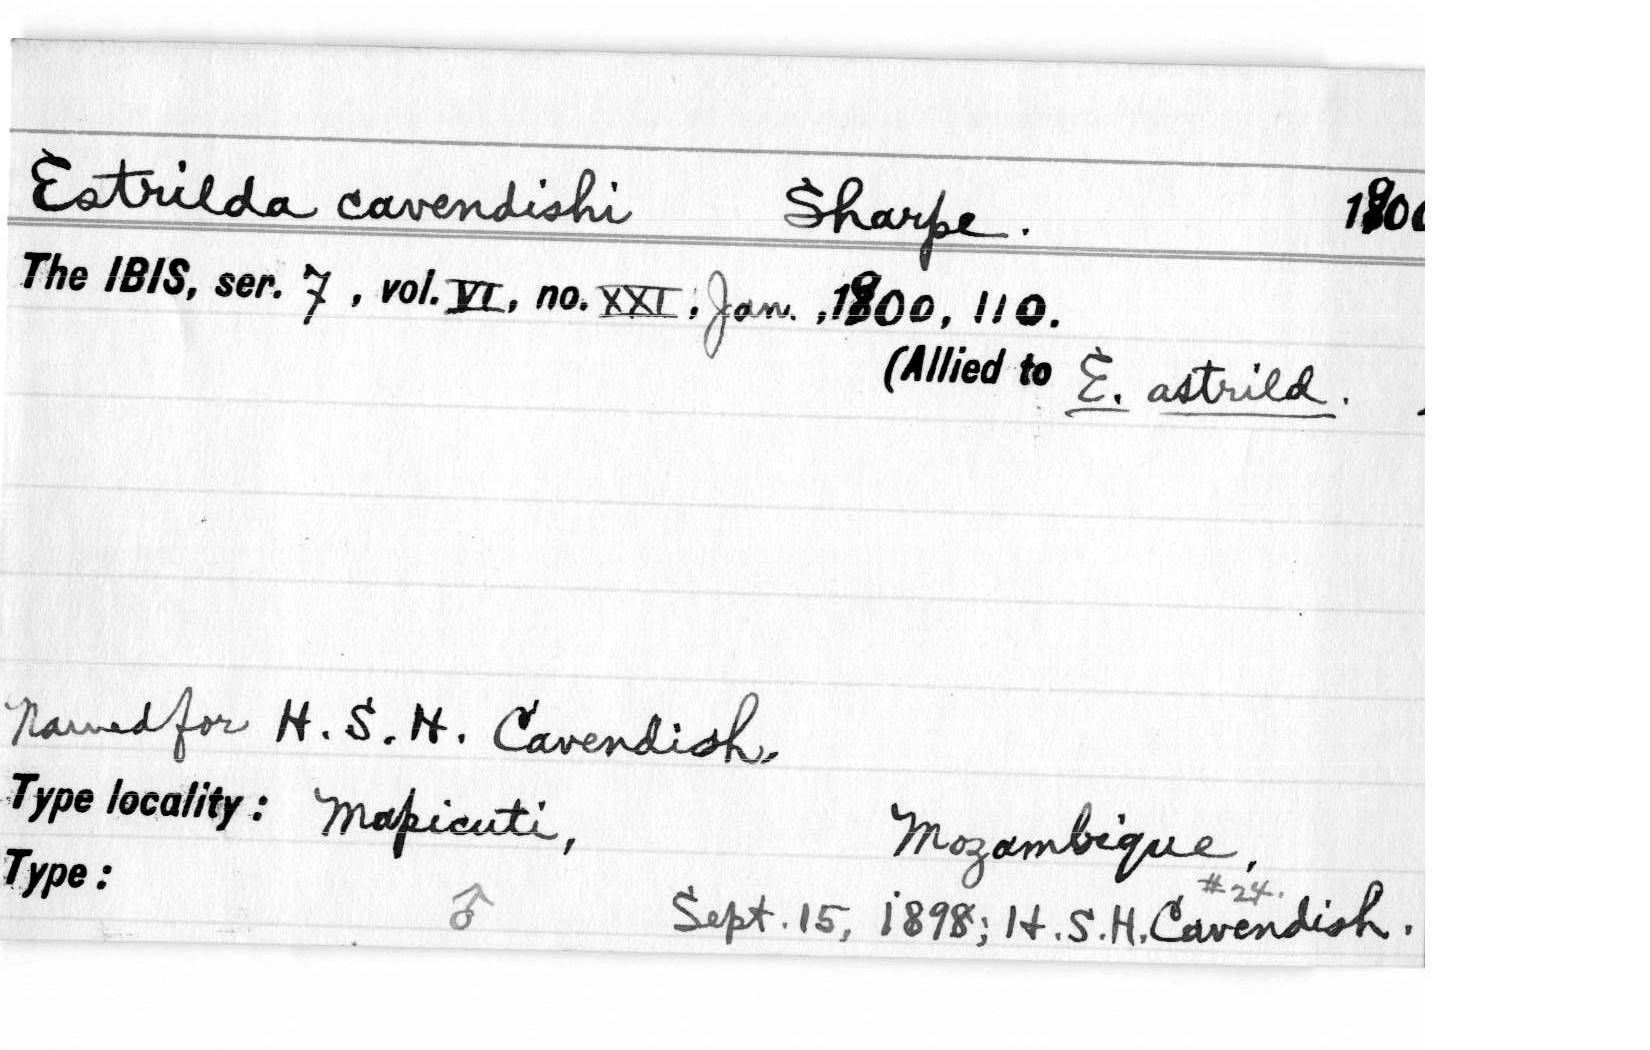 Estrilda cavendishi Sharpe. 1900
The IBIS, ser. 7, vol. VI, no. XXI, Jan., 1900, 110.
(Allied to E. astrild.
Named for H. S. H. Cavendish.
Type locality: Mapicuti, Mozambique,
#24.
Type: ♂ Sept. 15, 1898; H.S.H. Cavendish.